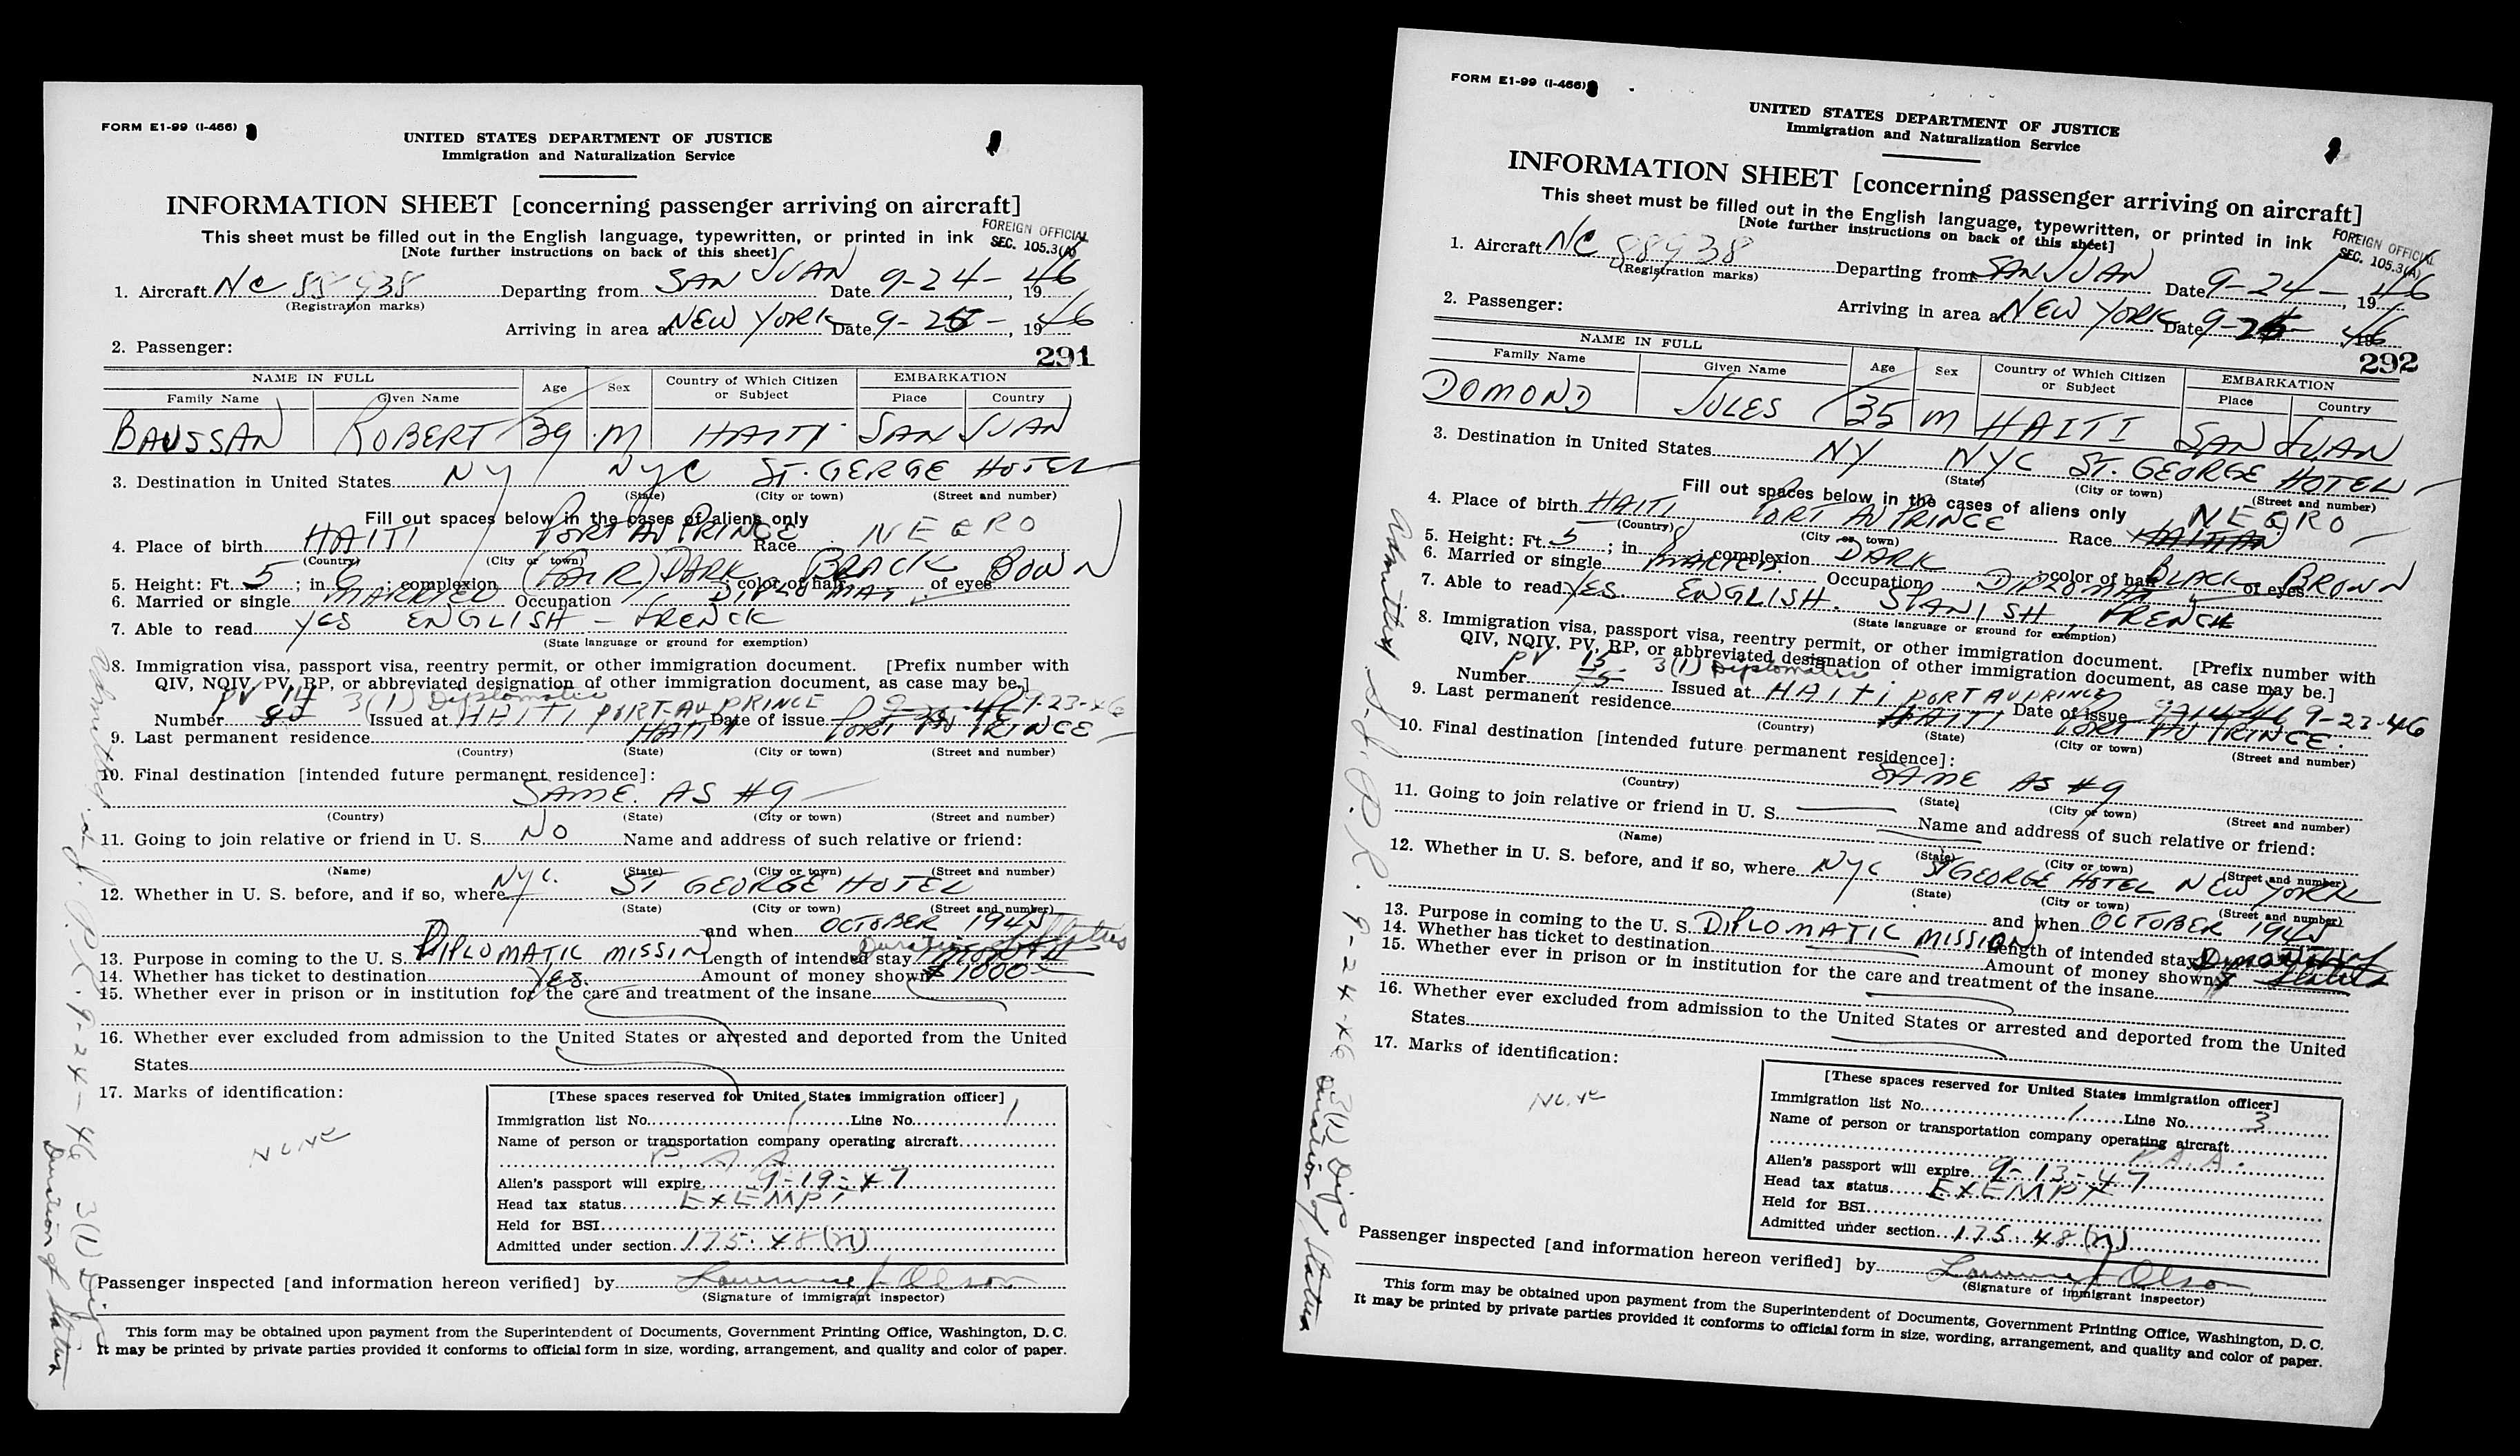 FORM E1-99 (I-466)
UNITED STATES DEPARTMENT OF JUSTICE
Immigration and Naturalization Service
INFORMATION SHEET [concerning passenger arriving on aircraft]
This sheet must be filled out in the English language, typewritten, or printed in ink
FOREIGN OFFICIAL
SEC. 105.3(A)
[Note further instructions on back of this sheet]
1. Aircraft NC 88938 Departing from SAN JUAN Date 9-24-, 1946
(Registration marks)
Arriving in area at NEW YORK Date 9-25-, 1946
2. Passenger:
291
NAME IN FULL Age Sex Country of Which Citizen or Subject EMBARKATION
Family Name Given Name Place Country
BAUSSAN ROBERT 39 M HAITI SAN JUAN
3. Destination in United States NY NYC ST. GERGE HOTEL
(State) (City or town) (Street and number)
Fill out spaces below in the cases of aliens only
4. Place of birth HAITI PORT AU PRINCE Race NEGRO
(Country) (City or town)
5. Height: Ft. 5; in 6; complexion (FAIR) DARK; color of hair BRACK of eyes BOWN
6. Married or single MARRIED Occupation DIPLOMAT
7. Able to read YES ENGLISH - FRENCK
(State language or ground for exemption)
8. Immigration visa, passport visa, reentry permit, or other immigration document. [Prefix number with
QIV, NQIV, PV, RP, or abbreviated designation of other immigration document, as case may be.]
PV 14 3(1) Diplomatic
Number Issued at HAITI PORT-AU PRINCE Date of issue 9-23-46
9. Last permanent residence HAITI PORT AU PRINCE
(Country) (State) (City or town) (Street and number)
10. Final destination [intended future permanent residence]:
SAME. AS #9
(Country) (State) (City or town) (Street and number)
11. Going to join relative or friend in U. S. NO Name and address of such relative or friend:
(Name) (State) (City or town) (Street and number)
12. Whether in U. S. before, and if so, where NYC. ST GEORGE HOTEL
(State) (City or town) (Street and number)
and when OCTOBER 1945
13. Purpose in coming to the U. S. DIPLOMATIC MISSIN Length of intended stay Duration of Status
14. Whether has ticket to destination Yes. Amount of money shown $ 1000
15. Whether ever in prison or in institution for the care and treatment of the insane
16. Whether ever excluded from admission to the United States or arrested and deported from the United
States
17. Marks of identification:
None
[These spaces reserved for United States immigration officer]
Immigration list No. 1 Line No. 1
Name of person or transportation company operating aircraft
P. A A
Alien's passport will expire 9-19-47
Head tax status EXEMPT
Held for BSI
Admitted under section 175.48(n)
Passenger inspected [and information hereon verified] by Lawrence J Olson
(Signature of immigrant inspector)
This form may be obtained upon payment from the Superintendent of Documents, Government Printing Office, Washington, D. C.
It may be printed by private parties provided it conforms to official form in size, wording, arrangement, and quality and color of paper.
Admitted S. J. P. R. 9-24-46 3(1) Dip
Duration of Status
FORM E1-99 (I-466)
UNITED STATES DEPARTMENT OF JUSTICE
Immigration and Naturalization Service
INFORMATION SHEET [concerning passenger arriving on aircraft]
This sheet must be filled out in the English language, typewritten, or printed in ink
FOREIGN OFFICIAL
SEC. 105.3(A)
[Note further instructions on back of this sheet]
1. Aircraft NC 88938 Departing from SAN JUAN Date 9-24-, 1946
(Registration marks)
2. Passenger: Arriving in area at NEW YORK Date 9-25- 1946
292
NAME IN FULL Age Sex Country of Which Citizen or Subject EMBARKATION
Family Name Given Name Place Country
DOMOND JULES 35 M HAITI SAN JUAN
3. Destination in United States NY NYC ST. GEORGE HOTEL
(State) (City or town) (Street and number)
Fill out spaces below in the cases of aliens only
4. Place of birth HAITI PORT AU PRINCE Race HAITIAN NEGRO
(Country) (City or town)
5. Height: Ft. 5; in 8; complexion DARK; color of hair BLACK of eyes BROWN
6. Married or single Occupation DIPLOMAT
7. Able to read YES ENGLISH. SPANISH, FRENCH
(State language or ground for exemption)
8. Immigration visa, passport visa, reentry permit, or other immigration document. [Prefix number with
QIV, NQIV, PV, RP, or abbreviated designation of other immigration document, as case may be.]
PV 15 3(1) Diplomatic
Number Issued at HAITI PORT AU PRINCE Date of issue 9-23-46
9. Last permanent residence HAITI PORT AU PRINCE.
(Country) (State) (City or town) (Street and number)
10. Final destination [intended future permanent residence]:
SAME AS #9
(Country) (State) (City or town) (Street and number)
11. Going to join relative or friend in U. S. Name and address of such relative or friend:
(Name) (State) (City or town) (Street and number)
12. Whether in U. S. before, and if so, where NYC ST GEORGE HOTEL NEW YORK
(State) (City or town) (Street and number)
and when OCTOBER 1945
13. Purpose in coming to the U. S. DIPLOMATIC MISSION Length of intended stay Duration of Status
14. Whether has ticket to destination Amount of money shown $
15. Whether ever in prison or in institution for the care and treatment of the insane
16. Whether ever excluded from admission to the United States or arrested and deported from the United
States
17. Marks of identification:
None
[These spaces reserved for United States immigration officer]
Immigration list No. 1 Line No. 3
Name of person or transportation company operating aircraft
P.A.A.
Alien's passport will expire 9-13-47
Head tax status EXEMPT
Held for BSI
Admitted under section 175.48(n)
Passenger inspected [and information hereon verified] by Lawrence J Olson
(Signature of immigrant inspector)
This form may be obtained upon payment from the Superintendent of Documents, Government Printing Office, Washington, D. C.
It may be printed by private parties provided it conforms to official form in size, wording, arrangement, and quality and color of paper.
Admitted S. J. P. R. 9-24-46 3(1) Dip
Duration of Status